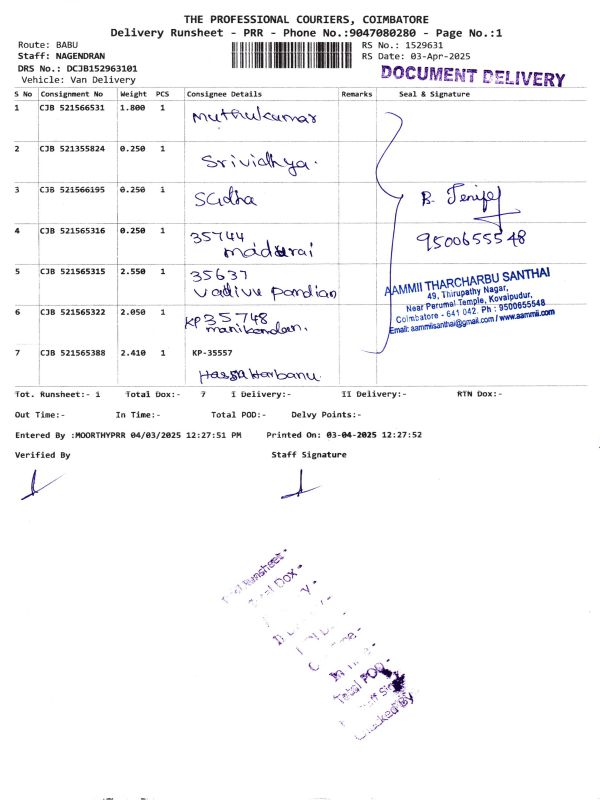 THE PROFESSIONAL COURIERS, COIMBATORE
Delivery Runsheet - PRR - Phone No.:9047080280 - Page No.:1
Route: BABU RS No.: 1529631
Staff: NAGENDRAN RS Date: 03-Apr-2025
DRS No.: DCJB152963101
Vehicle: Van Delivery
DOCUMENT DELIVERY
S No Consignment No Weight PCS Consignee Details Remarks Seal & Signature
1 CJB 521566531 1.800 1 Muthukumar
2 CJB 521355824 0.250 1 Srividhya.
3 CJB 521566195 0.250 1 Sudha
4 CJB 521565316 0.250 1 35744
madurai
5 CJB 521565315 2.550 1 35637
Vadivu pandian
6 CJB 521565322 2.050 1 KP 35748
manikandan.
7 CJB 521565388 2.410 1 KP-35557
B. Jenifer
9500655548
AAMMII THARCHARBU SANTHAI
49, Thirupathy Nagar,
Near Perumal Temple, Kovaipudur,
Coimbatore - 641 042. Ph : 9500655548
Email: aammiisanthai@gmail.com / www.aammii.com
Tot. Runsheet:- 1 Total Dox:- 7 I Delivery:- II Delivery:- RTN Dox:-
Out Time:- In Time:- Total POD:- Delvy Points:-
Entered By :MOORTHYPRR 04/03/2025 12:27:51 PM Printed On: 03-04-2025 12:27:52
Verified By Staff Signature
Runsheet -
Dox -
In
Total POD -